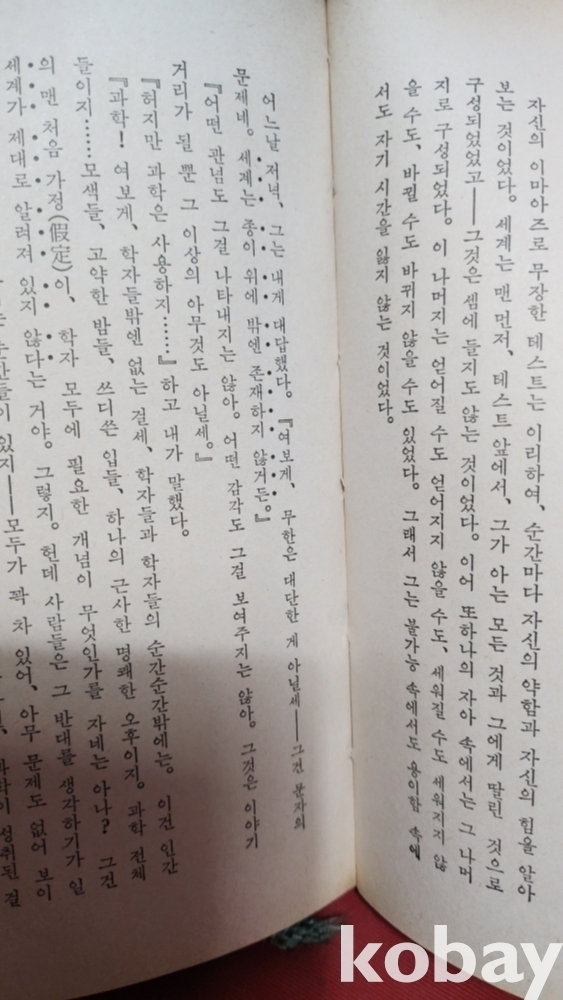 자신의 이마아즈로 무장한 테스트는 이리하여, 순간마다 자신의 약함과 자신의 힘을 알아
보는 것이었다. 세계는 맨 먼저, 테스트 앞에서, 그가 아는 모든 것과 그에게 딸린 것으로
구성되었었고──그것은 셈에 들지도 않는 것이었다. 이어 또하나의 자아 속에서는 그 나머
지로 구성되었다. 이 나머지는 얻어질 수도 얻어지지 않을 수도, 세워질 수도 세워지지 않
을 수도, 바뀔 수도 바뀌지 않을 수도 있었다. 그래서 그는 불가능 속에서도 용이함 속에
서도 자기 시간을 잃지 않는 것이었다.
어느날 저녁, 그는 내게 대답했다. 『여보게, 무한은 대단한 게 아닐세──그건 문자의
문제네. 세계는 종이 위에 밖엔 존재하지 않거든.』
『어떤 관념도 그걸 나타내지는 않아. 어떤 감각도 그걸 보여주지는 않아. 그것은 이야기
거리가 될 뿐 그 이상의 아무것도 아닐세.』
『허지만 과학은 사용하지……』 하고 내가 말했다.
『과학! 여보게, 학자들밖엔 없는 걸세, 학자들과 학자들의 순간순간밖에는. 이건 인간
들이지……모색들, 고약한 밤들, 쓰디쓴 입들, 하나의 근사한 명쾌한 오후이지. 과학 전체
의 맨 처음 가정(假定)이, 학자 모두에 필요한 개념이 무엇인가를 자네는 아나? 그건
세계가 제대로 알려져 있지 않다는 거야. 그렇지. 헌데 사람들은 그 반대를 생각하기가 일
순간들이 있지──모두가 꽉 차 있어, 아무 문제도 없어 보이
성취된 걸
kobay